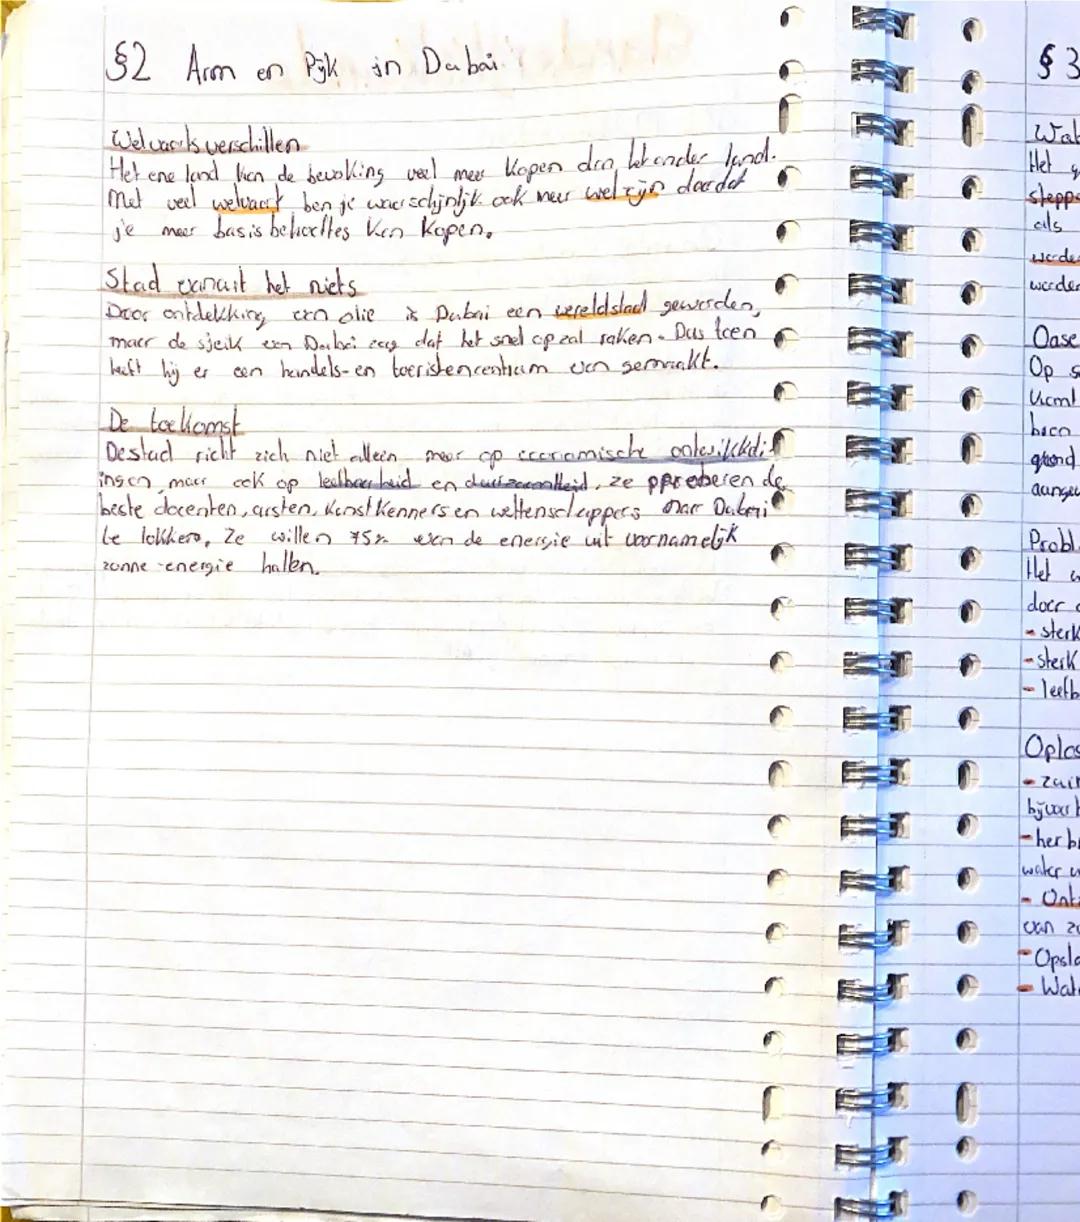 §2 Arm en Rijk in Dubai
Welvaartsverschillen
Het ene land kan de bevolking veel meer kopen dan het ander land.
Met veel welvaart ben je waarschijnlijk ook meer welzijn doordat
je meer basisbehoeftes kan kopen.
Stad vanuit het niets
Door ontdekking van olie is Dubai een wereldstad geworden,
maar de sjeik van Dubai zag dat het snel op zal raken. Dus toen
heeft hij er een handels- en toeristencentrum van gemaakt.
De toekomst
De stad richt zich niet alleen meer op economische ontwikkel
ingen, maar ook op leefbaarheid en duurzaamheid, ze proberen de
beste docenten, artsen, kunstkenners en wettenschappers naar Dubai
te lokken. Ze willen 75% van de energie uit voornamelijk
zonne-energie hallen.
§3
Het
als
Oase
Op
grond
Het
door
- sterk
- sterk
- leefb
Oplos
- her
water
van
- Opsla
- Wat